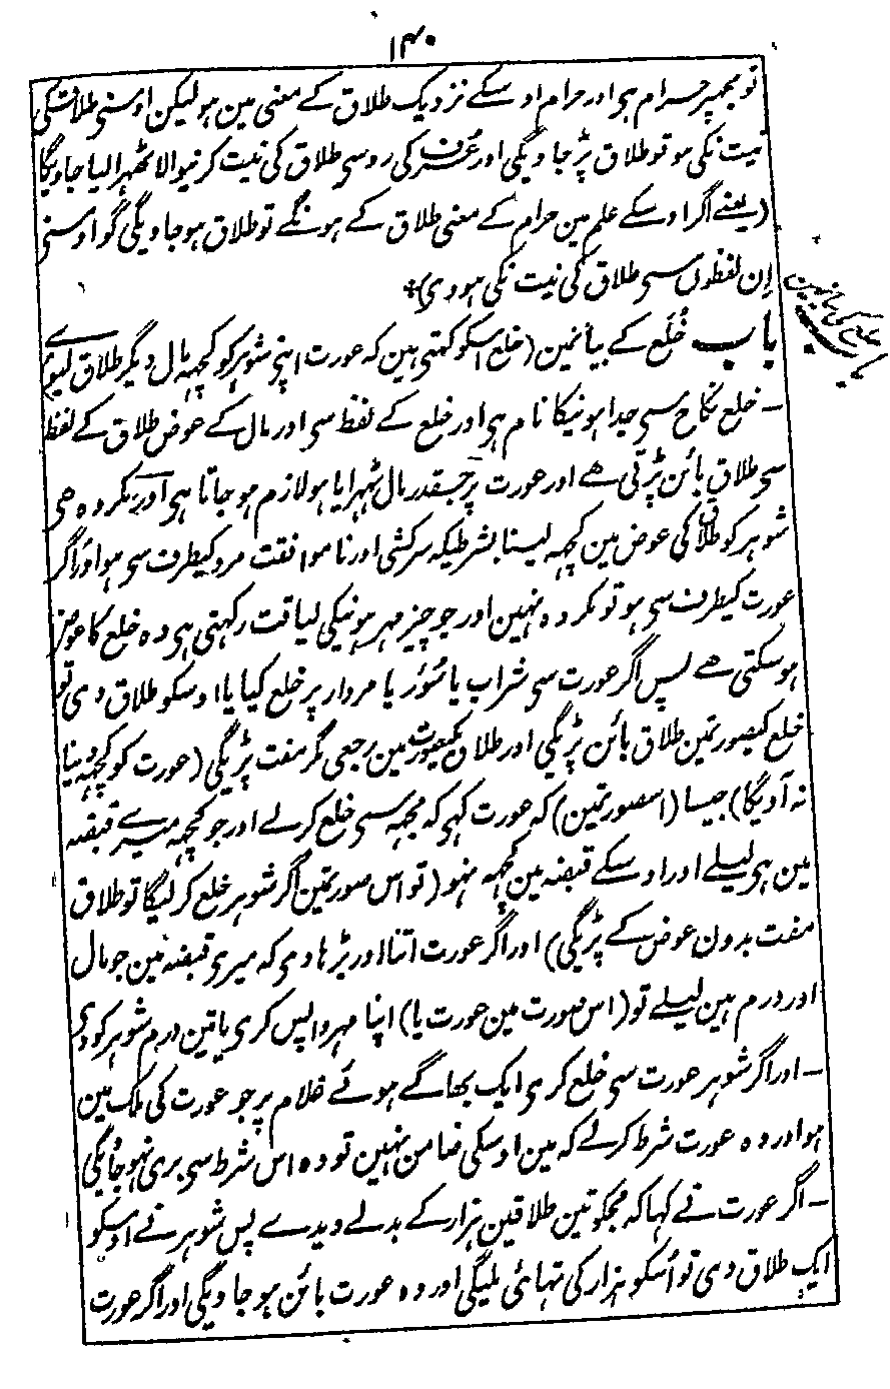 ۱۴۰
تو مجھپر حرام ہی اور حرام اوسکے نزدیک طلاق کے معنی مین ہو لیکن اوسنی طلاق کی
نیت نکی ہو تو طلاق پڑ جاویگی اور عُرف کی روسی طلاق کی نیت کرنیوالا ٹھہرا لیا جاویگا
(یعنے اگر اوسکے علم مین حرام کے معنی طلاق کے ہونگے تو طلاق ہو جاویگی گو اوسنی
اِن لفظوں سی طلاق کی نیت نکی ہووی)*
باب خُلع کے بیانمین (خلع اسکو کہتی ہین کہ عورت اپنی شوہر کو کچھہ مال دیکر طلاق لیوے
باب خلع کی بیانمین
– خلع نکاح سی جدا ہونیکا نام ہی اور خلع کے لفظ سی اور مال کے عوض طلاق کے لفظ
سی طلاق بائن پڑتی ھے اور عورت پر جسقدر مال ٹہرایا ہو لازم ہو جاتا ہی اور مکروہ ھی
شوہر کو طلاق کی عوض مین کچھہ لینا بشرطیکہ سرکشی اور ناموافقت مرد کیطرف سی ہو اور اگر
عورت کیطرف سی ہو تو مکروہ نہین اور جو چیز مہر ہونیکی لیاقت رکہتی ہی وہ خلع کا عوض
ہو سکتی ھے پس اگر عورت سی شراب یا سُوَر یا مردار پر خلع کیا یا اوسکو طلاق دی تو
خلع کیصورتمین طلاق بائن پڑیگی اور طلاق کیصورت مین رجعی مگر مفت پڑیگی (عورت کو کچھہ دینا
نہ آویگا) جیسا (اسصورتمین) کہ عورت کہی کہ مجھہ سی خلع کرلے اور جو کچھہ میرے قبضہ
مین ہی لیلے اور اوسکے قبضہ مین کچھہ نہو (تو اس صورتمین اگر شوہر خلع کرلیگا تو طلاق
مفت بدون عوض کے پڑیگی) اور اگر عورت اتنا اور بڑہا دی کہ میری قبضہ مین جو مال
اور درم ہین لیلے تو (اس صورت مین عورت یا) اپنا مہر واپس کری یا تین درم شوہر کو دی
– اور اگر شوہر عورت سی خلع کری ایک بھاگے ہوئے غلام پر جو عورت کی ملک مین
ہو اور وہ عورت شرط کرلے کہ مین اوسکی ضامن نہین تو وہ اس شرط سی بری نہو جائیگی
– اگر عورت نے کہا کہ مجکو تین طلاقین ہزار کے بدلے دیدے پس شوہر نے اوسکو
ایک طلاق دی تو اُسکو ہزار کی تہائی ملیگی اور وہ عورت بائن ہو جاویگی اور اگر عورت